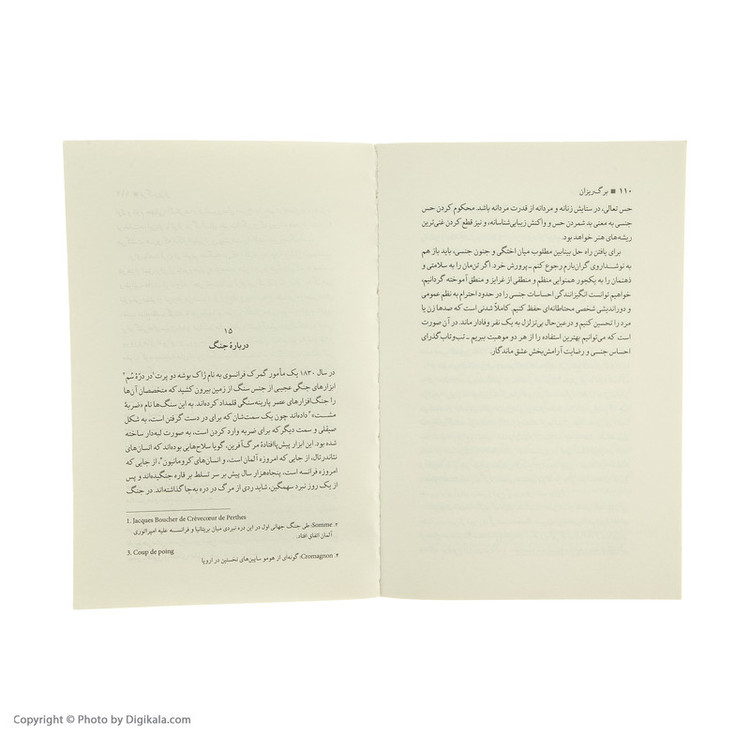 ۱۱۰ ■ برگ‌ریزان
حس تعالی، در ستایش زنانه و مردانه از قدرت مردانه باشد. محکوم کردن حس
جنسی به معنی بد شمردن حس و واکنش زیبایی‌شناسانه، و نیز قطع کردن غنی‌ترین
ریشه‌های هنر خواهد بود.
برای یافتن راه حل بینابین مطلوب میان اختگی و جنون جنسی، باید باز هم
به نوشداروی گران‌بازم رجوع کنم ـ پرورش خرد. اگر تن‌مان را به سلامتی و
ذهنمان را به یکجور همنوایی منظم و منطقی از غرایز و منطق آموخته گردانیم،
خواهیم توانست انگیزانندگی احساسات جنسی را در حدود احترام به نظم عمومی
و دوراندیشی شخصی محتاطانه‌ای حفظ کنیم. کاملاً شدنی است که صدها زن یا
مرد را تحسین کنیم و درعین‌حال بی‌تزلزل به یک نفر وفادار ماند. در آن صورت
است که می‌توانیم بهترین استفاده را از هر دو موهبت ببریم ـ تب‌وتاب گذرای
احساس جنسی و رضایت آرامش‌بخش عشق ماندگار.
۱۵
دربارهٔ جنگ
در سال ۱۸۳۰ یک مأمور گمرک فرانسوی به نام ژاک بوشه دو پرت ۱ در درّهٔ سُم ۲
ابزارهای جنگی عجیبی از جنس سنگ از زمین بیرون کشید که متخصصان آن‌ها
را جنگ‌افزارهای عصر پارینه‌سنگی قلمداد کرده‌اند. به این سنگ‌ها نام «ضربهٔ
مشت» ۳ داده‌اند چون یک سمت‌شان که برای در دست گرفتن است، به شکل
صیقلی و سمت دیگر که برای ضربه وارد کردن است، به صورت لبه‌دار ساخته
شده بود. این ابزار پیش‌پاافتادهٔ مرگ‌آفرین، گویا سلاح‌هایی بوده‌اند که انسان‌های
نئاندرتال، از جایی که امروزه آلمان است، و انسان‌های کرومانیون ۴، از جایی که
امروزه فرانسه است، پنجاه‌هزار سال پیش بر سر تسلط بر قاره جنگیده‌اند و پس
از یک روز نبرد سهمگین، شاید ردی از مرگ در دره به‌جا گذاشته‌اند. در جنگ
1. Jacques Boucher de Crèvecœur de Perthes
۲. Somme؛ طی جنگ جهانی اول در این دره نبردی میان بریتانیا و فرانسه علیه امپراتوری
آلمان اتفاق افتاد.
3. Coup de poing
۴. Cromagnon؛ گونه‌ای از هومو ساپین‌های نخستین در اروپا
Copyright © Photo by Digikala.com